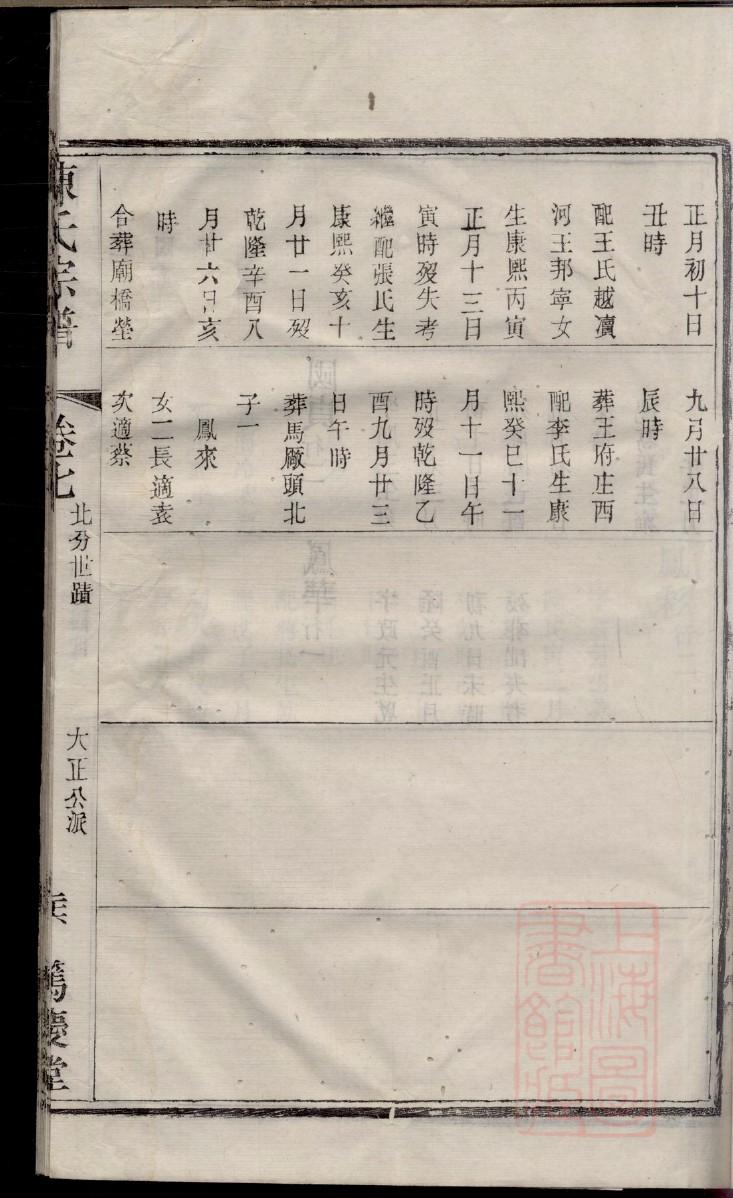 正月初十日
丑時
配王氏越瀆
河王邦寧女
生康熙丙寅
正月十三日
寅時歿失考
繼配張氏生
康熙癸亥十
月廿一日歿
乾隆辛酉八
月廿六日亥
時
合葬廟橋塋
九月廿八日
辰時
葬王府庄西
配李氏生康
熙癸巳十一
月十一日午
時歿乾隆乙
酉九月廿三
日午時
葬馬厰頭北
子一
鳳來
女二長適袁
次適蔡
陳氏宗譜
卷七
北分世蹟
大正公派
篤慶堂
上海圖
書館藏